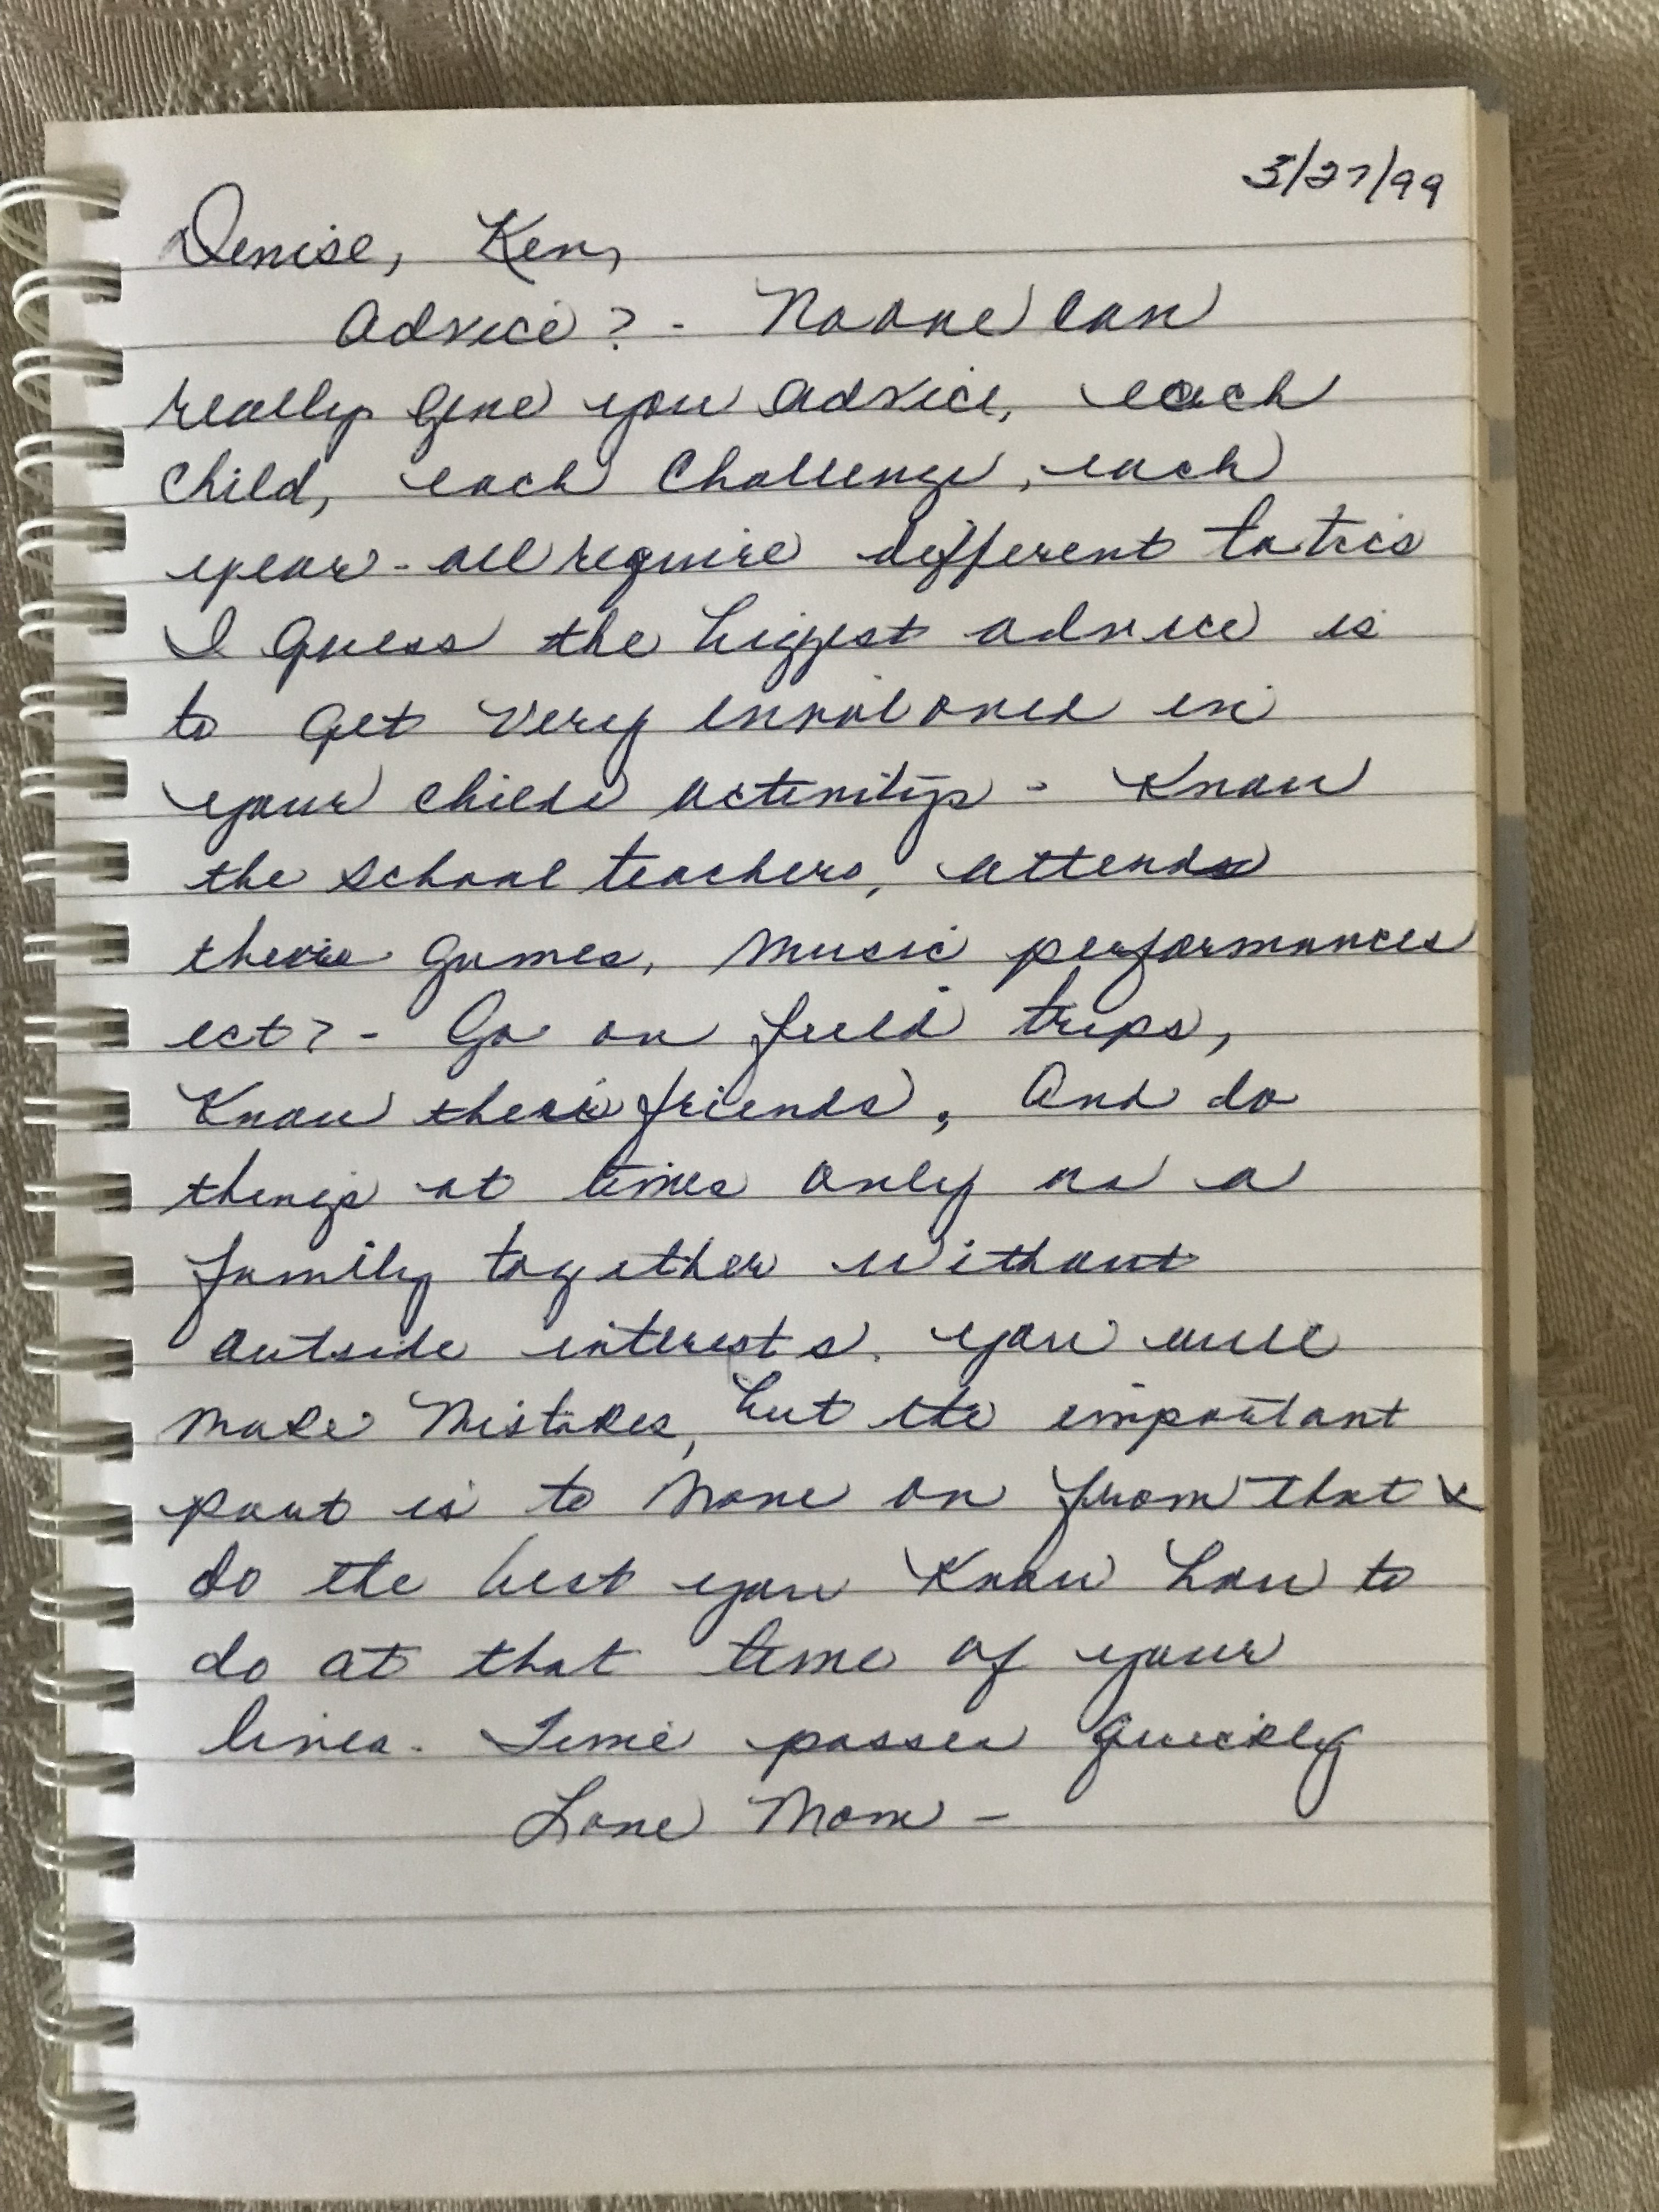 3/27/99
Denise, Ken,
Advice? - No one can
really give you advice, each
child, each challenge, each
year - all require different tatics
I guess the biggest advice is
to get very involoved in
your childs activitys - Know
the school teachers, attend
their games, music performances
ect? - Go on field trips,
Know their friends, And do
things at times only as a
family together without
outside interests. You will
make mistakes, but the important
part is to move on from that &
do the best you know how to
do at that time of your
lives. Time passes quickly
Love Mom -